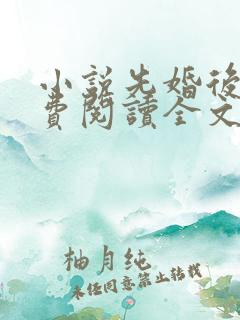 小說先婚後
費閱讀全文
柚月纯
未经同意禁止转载